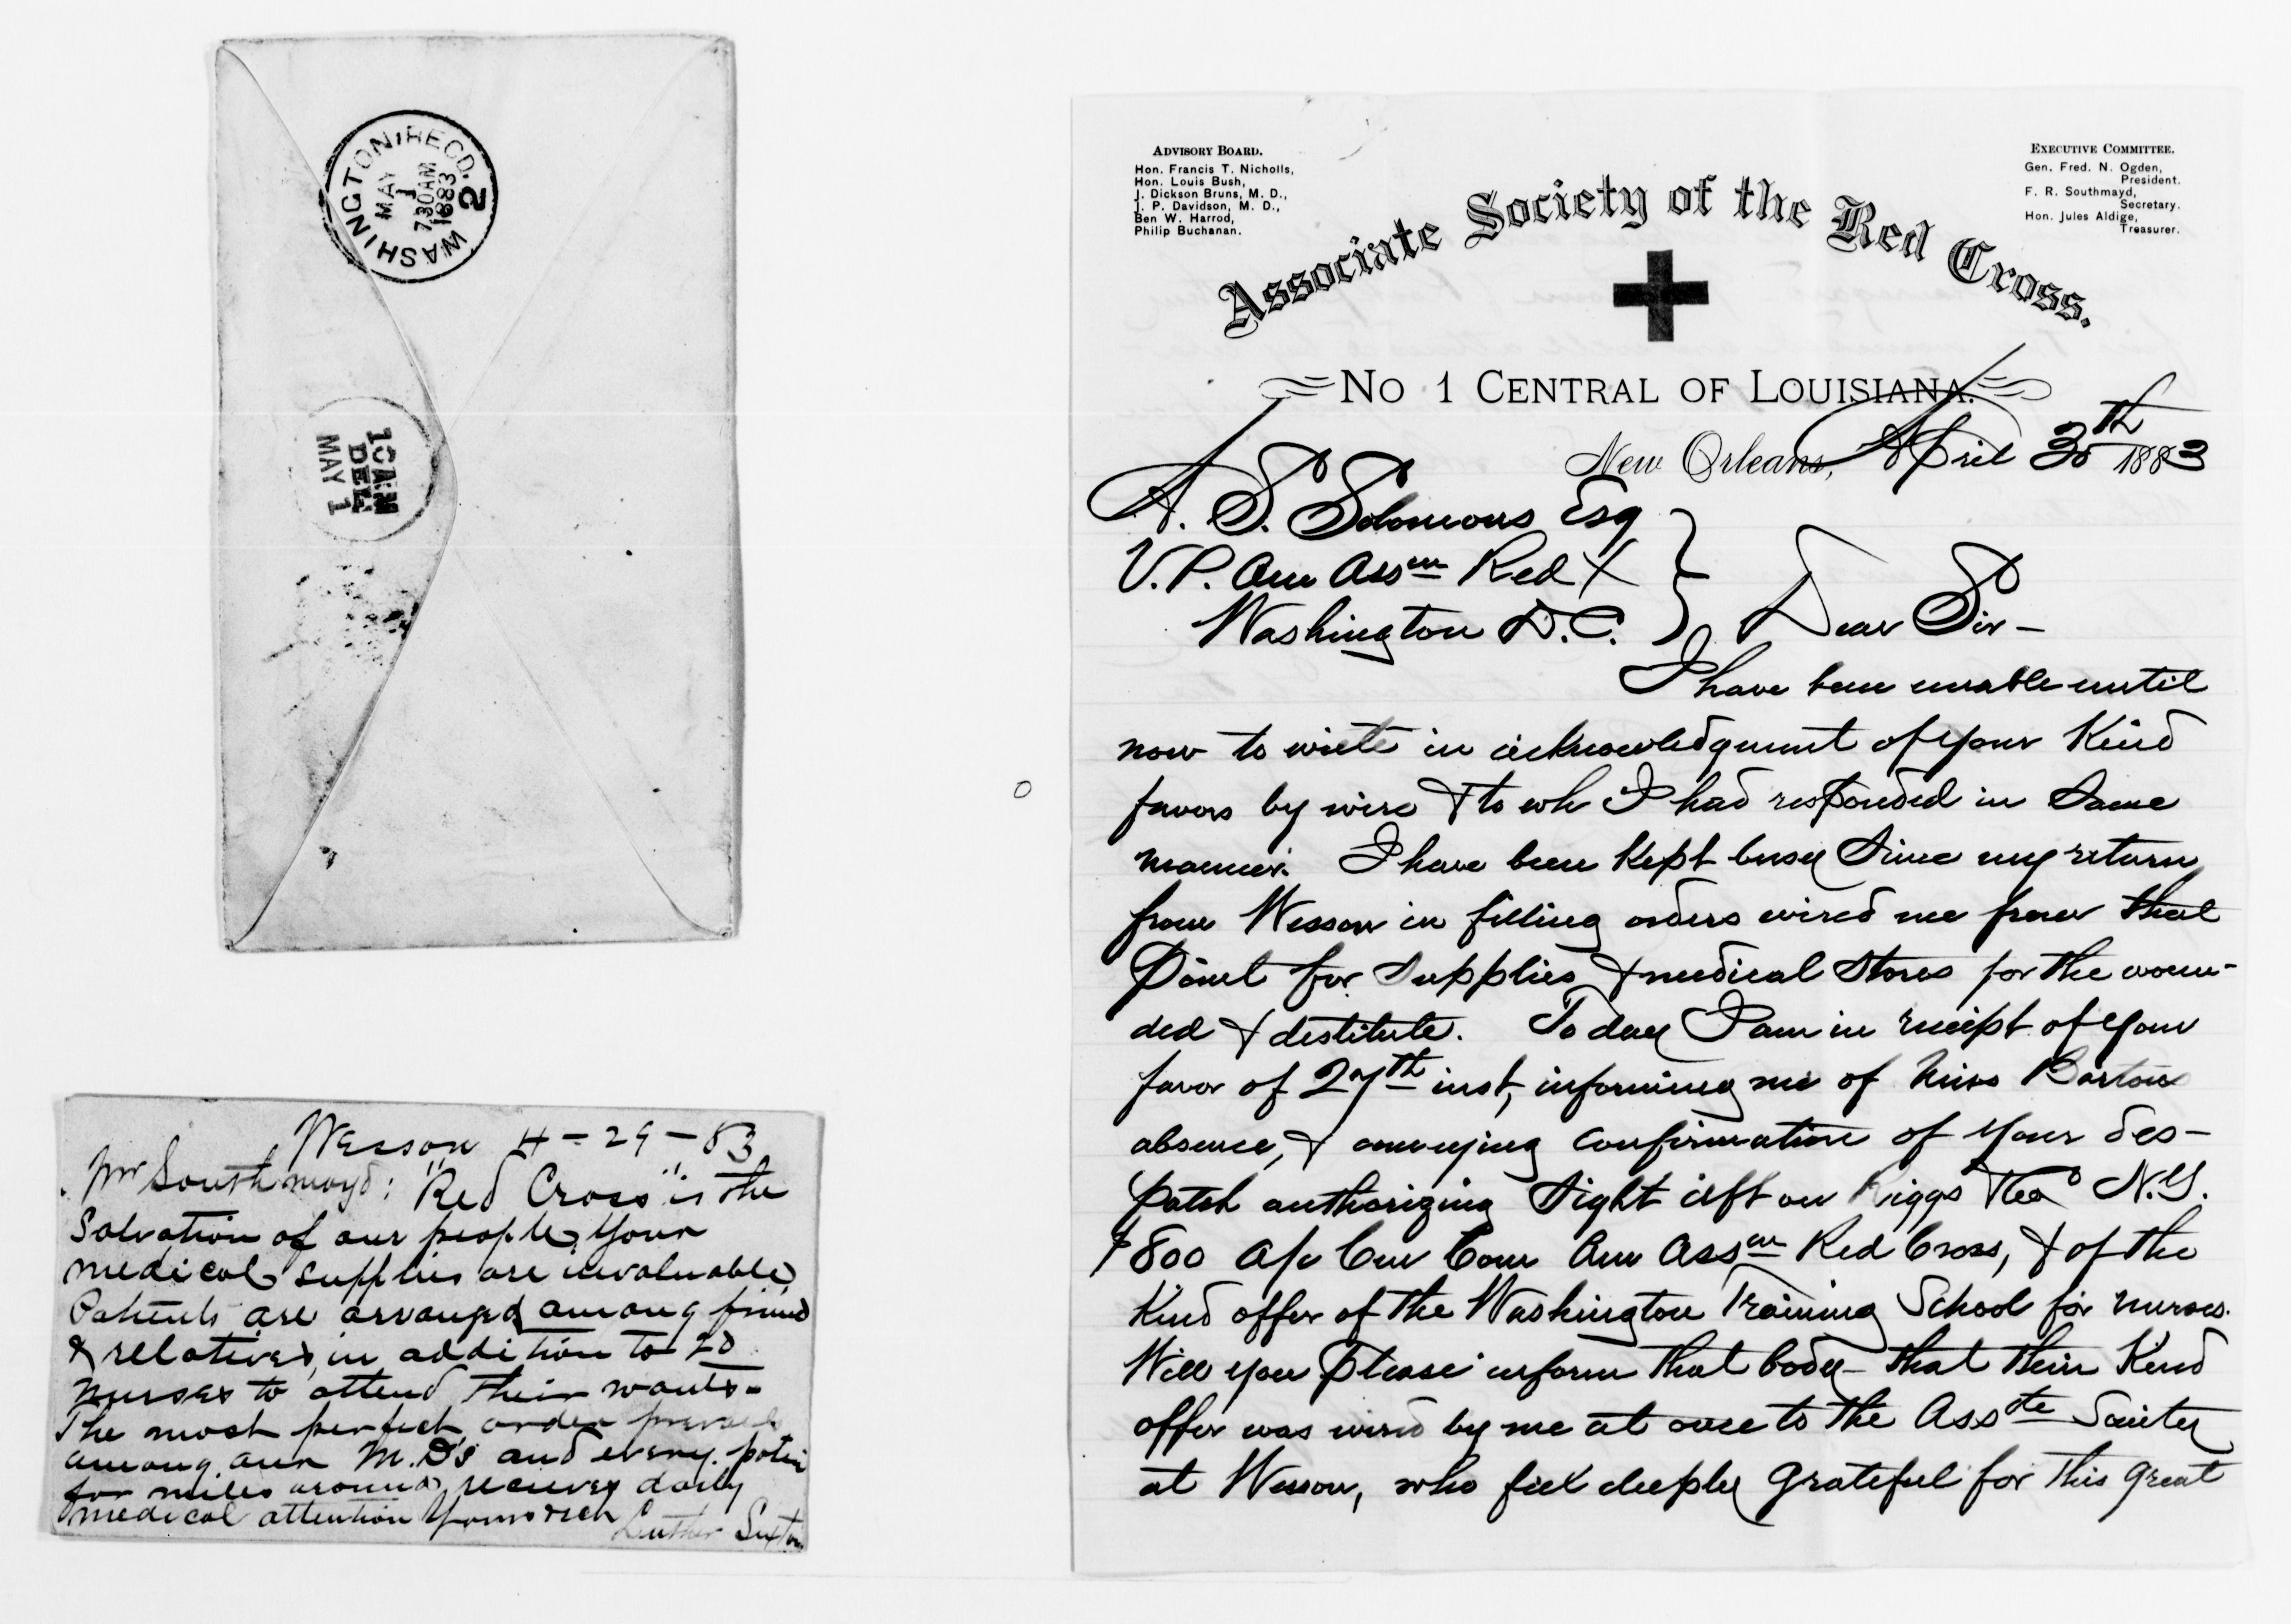 WASHINGTON, RECD.
MAY
1
730AM
1883
2
10AM
DEL'
MAY 1
Wesson 4-29-83
Mr Southmayd: "Red Cross" is the
Salvation of our people, Your
medical supplies are invaluable,
Patients are arranged among friend
& relatives, in addition to 20
nurses to attend their wants-
The most perfect order prevails
among our M.D's and every
for miles around, receives daily
medical attention Yours
Luther Sexton
ADVISORY BOARD.
Hon. Francis T. Nicholls,
Hon. Louis Bush,
J. Dickson Bruns, M. D.,
J. P. Davidson, M. D.,
Ben W. Harrod,
Philip Buchanan.
EXECUTIVE COMMITTEE.
Gen. Fred. N. Ogden,
President.
F. R. Southmayd,
Secretary.
Hon. Jules Aldige,
Treasurer.
Associate Society of the Red Cross.
NO 1 CENTRAL OF LOUISIANA.
New Orleans, April 30th 1883
A. S. Solomons Esq
V.P. Am Assn Red X
Washington D.C.
Dear Sir-
I have been unable until
now to write in acknowledgment of your kind
favors by wire & to wh I had responded in same
manner. I have been kept busy since my return
from Wesson in filling orders wired me from that
point for supplies & medical stores for the woun-
ded & destitute. Today I am in receipt of your
favor of 27th inst, informing me of Miss Bartons
absence, & conveying confirmation of your des-
patch authorizing sight dft on Riggs & Co N.Y.
$800 a/c Cen Com Am Assn Red Cross, & of the
kind offer of the Washington Training School for nurses.
Will you please inform that body that their kind
offer was wired by me at once to the Asste Society
at Wesson, who feel deeply grateful for this great